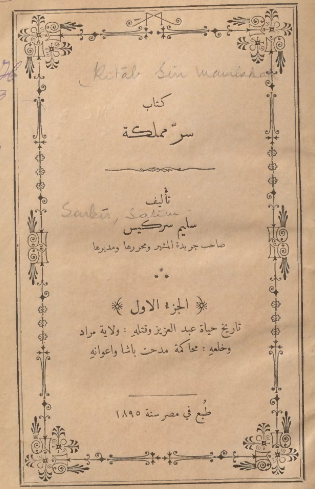 Kitāb Sirr Mamlaka
كتاب
سرّ مملكة
تأليف
Sarkīs, Salīm
سليم سركيس
صاحب جريدة المشير ومحررها ومديرها
الجزء الاول
تاريخ حياة عبد العزيز وقتله : ولاية مراد
وخلعه : محاكمة مدحت باشا واعوانه
طُبع في مصر سنة ١٨٩٥